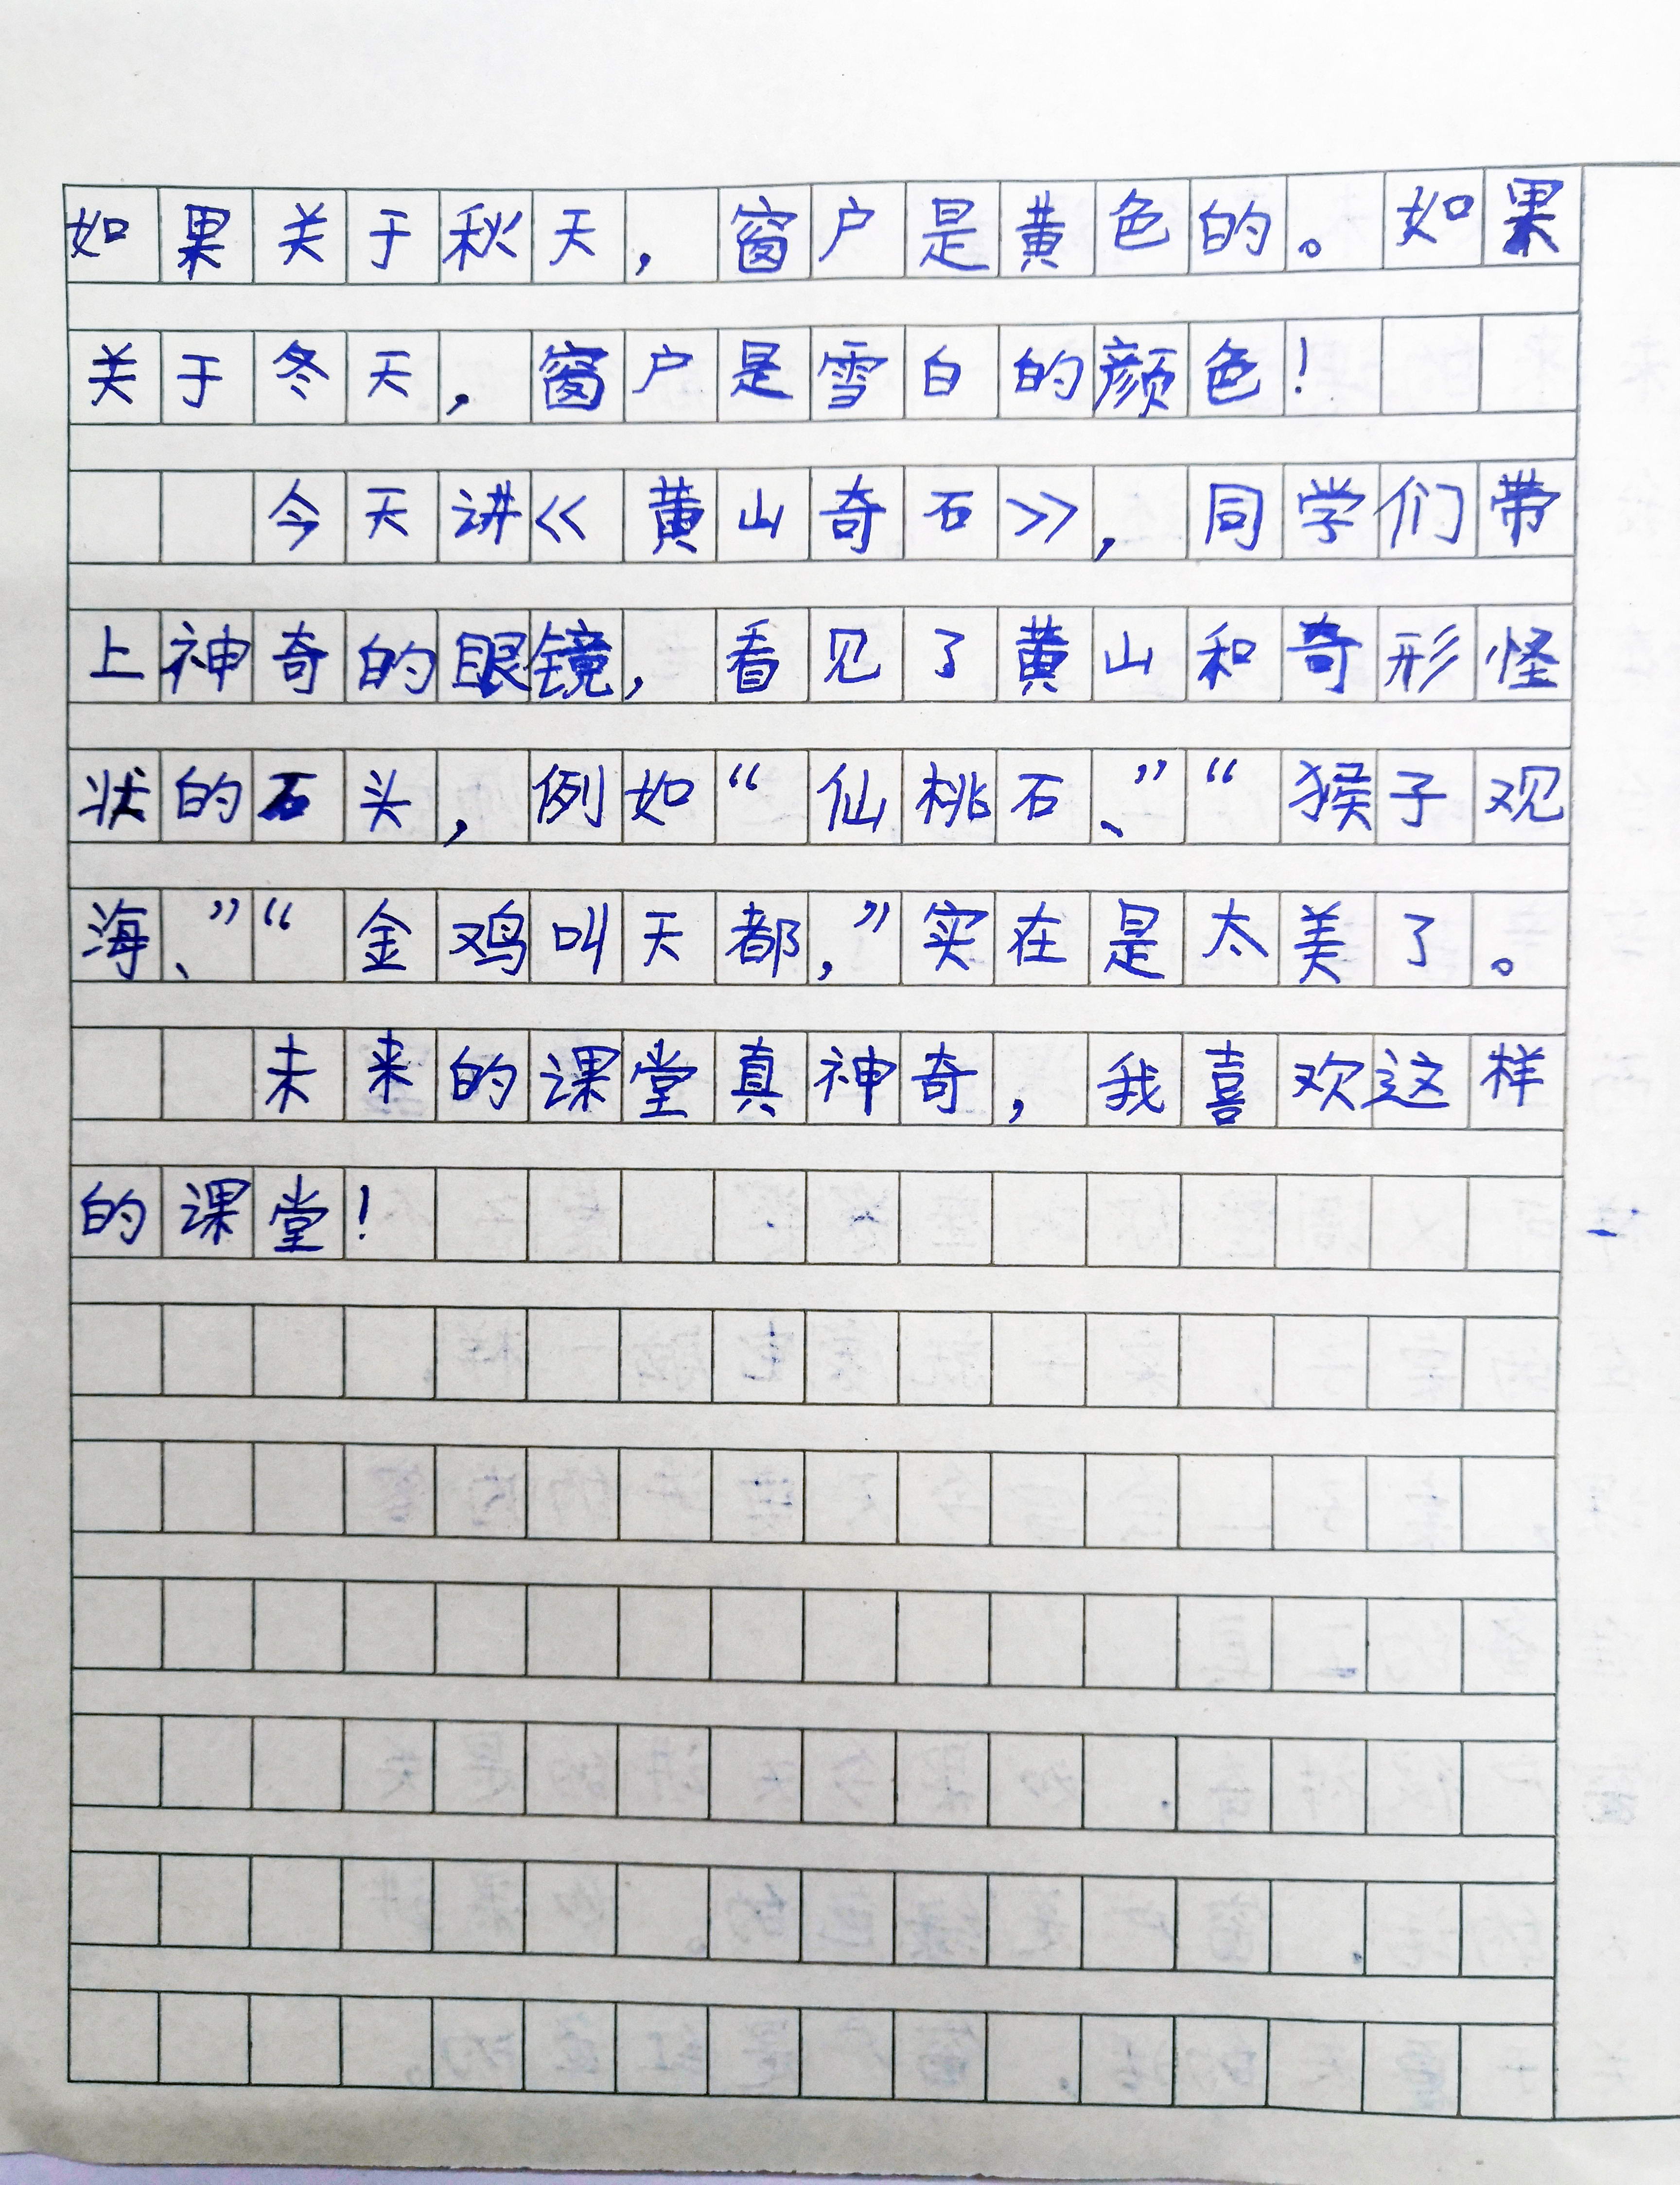 如果关于秋天，窗户是黄色的。如果
关于冬天，窗户是雪白的颜色！
今天讲《黄山奇石》，同学们带
上神奇的眼镜，看见了黄山和奇形怪
状的石头，例如“仙桃石、”“猴子观
海、”“金鸡叫天都，”实在是太美了。
未来的课堂真神奇，我喜欢这样
的课堂！